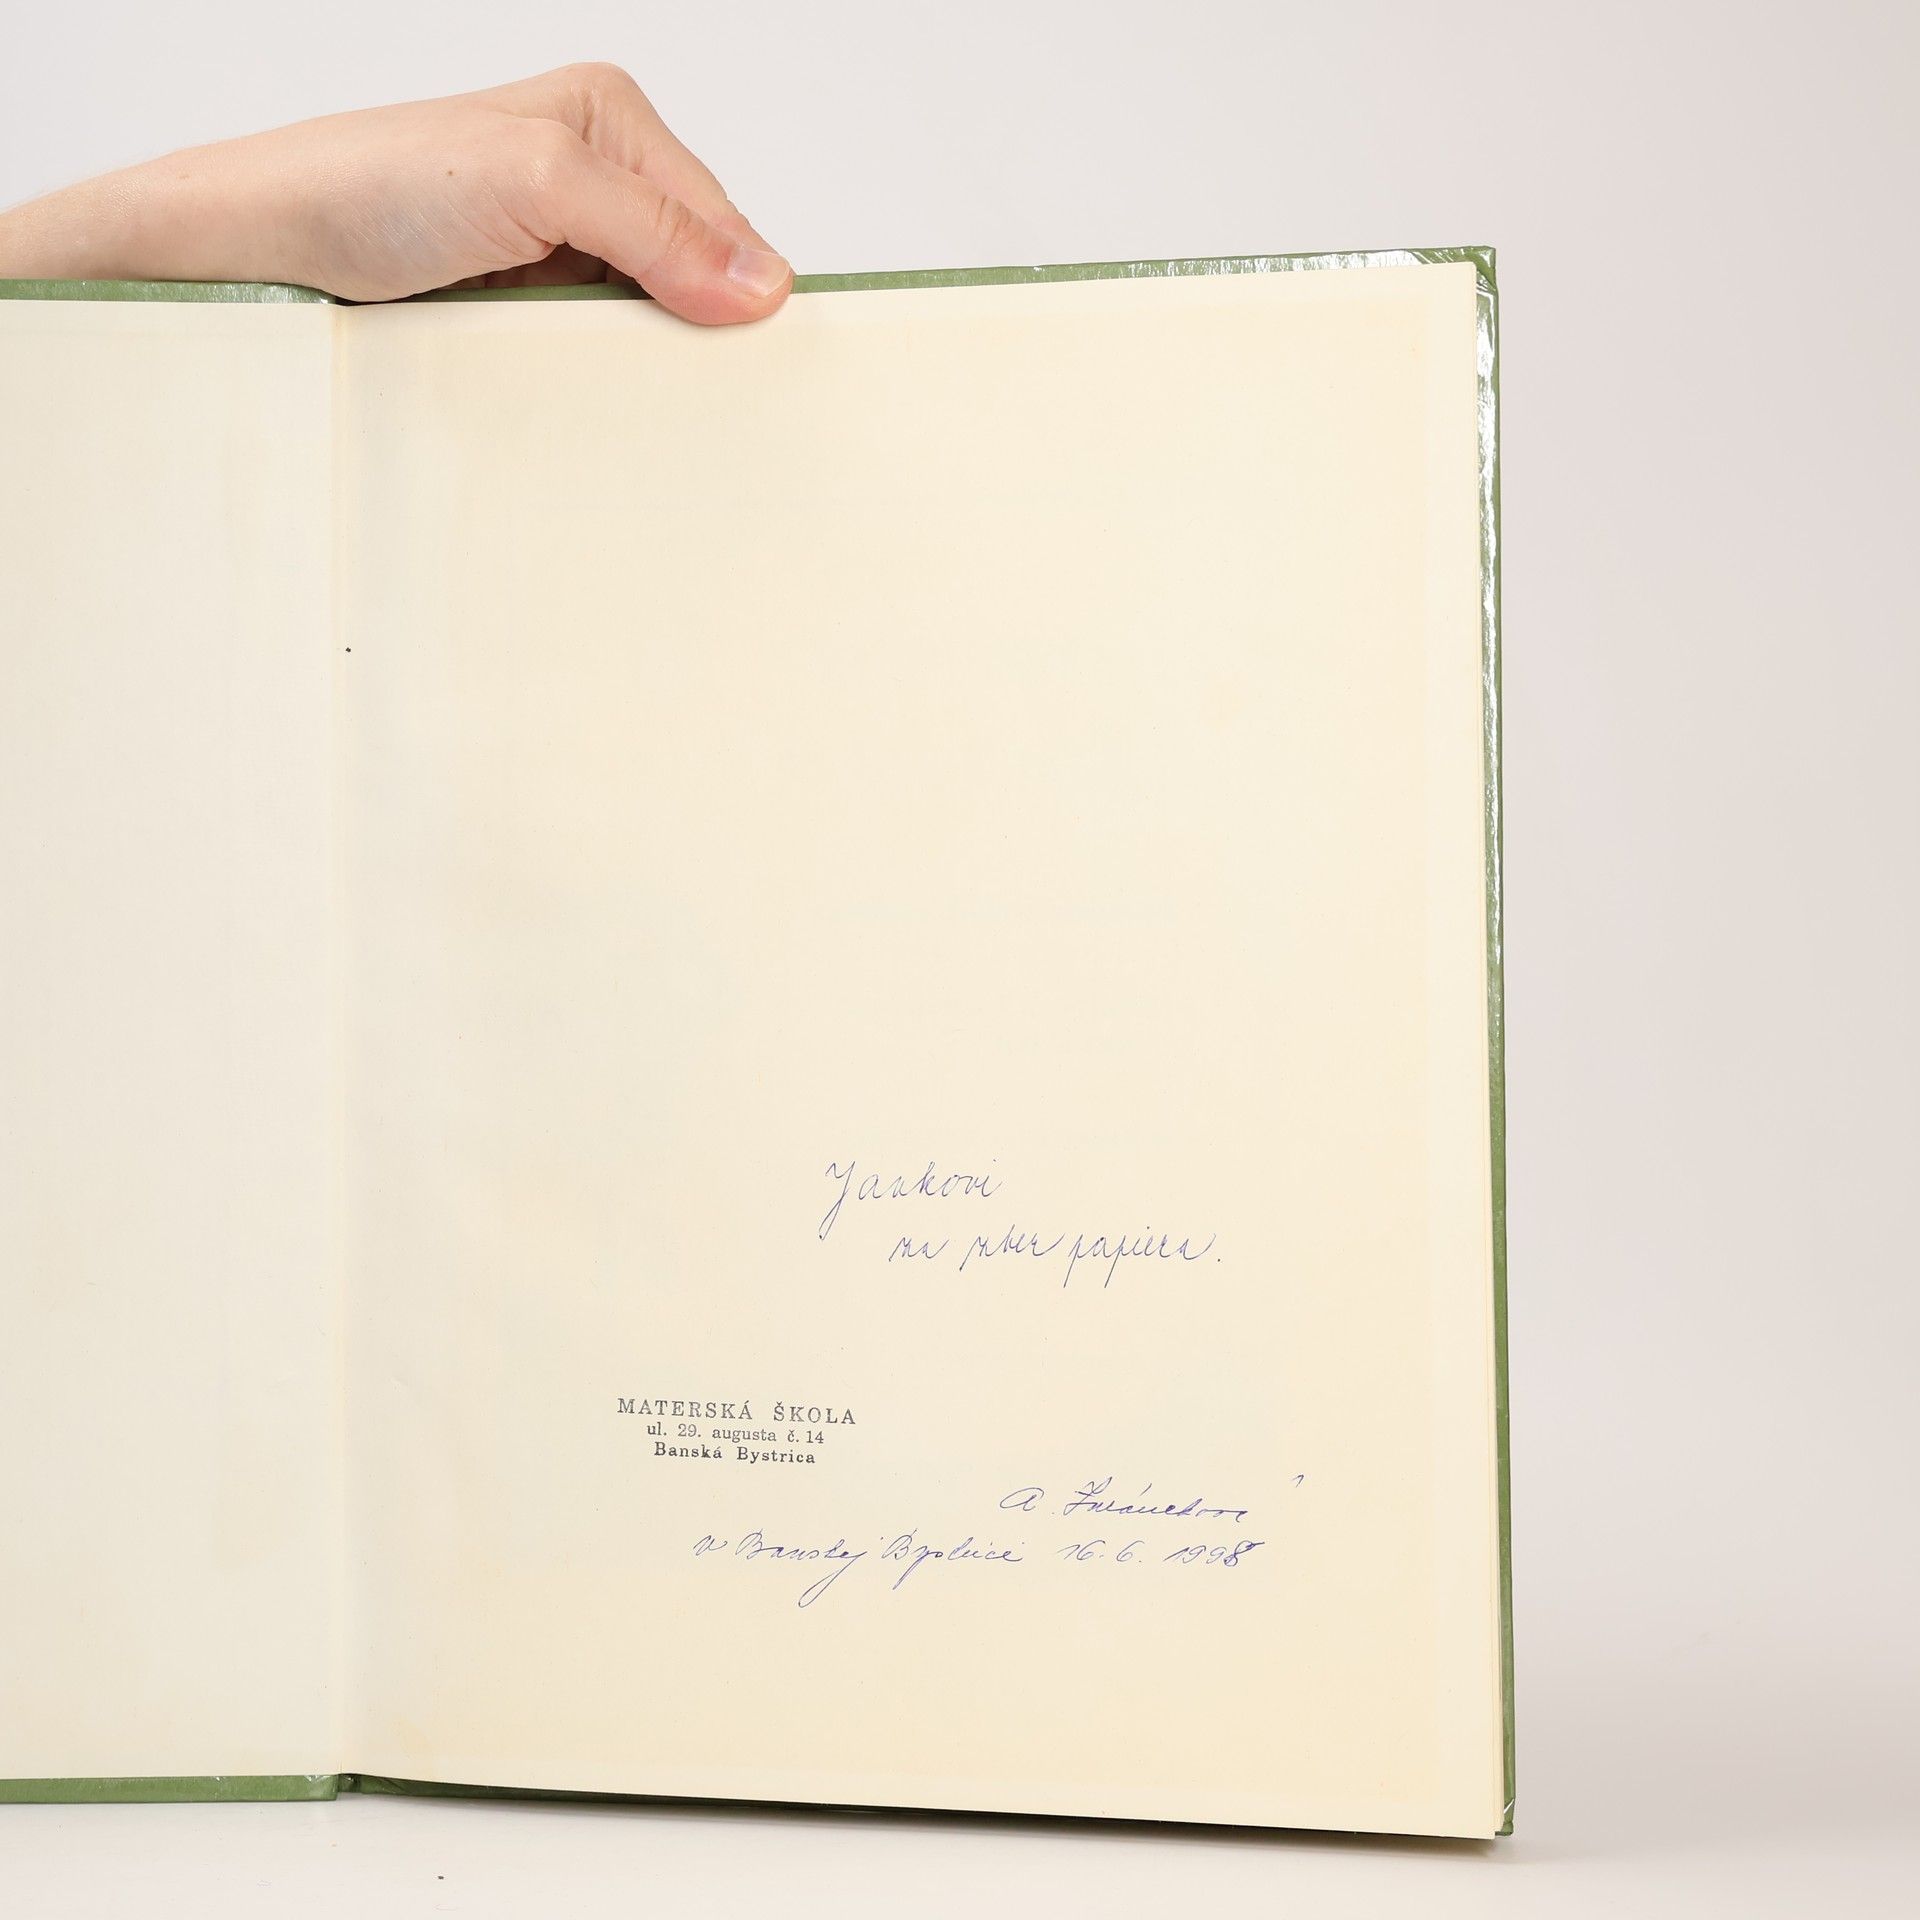 Jankovi
za zber papiera.
MATERSKÁ ŠKOLA
ul. 29. augusta č. 14
Banská Bystrica
A.
v Banskej Bystrici 16.6.1998